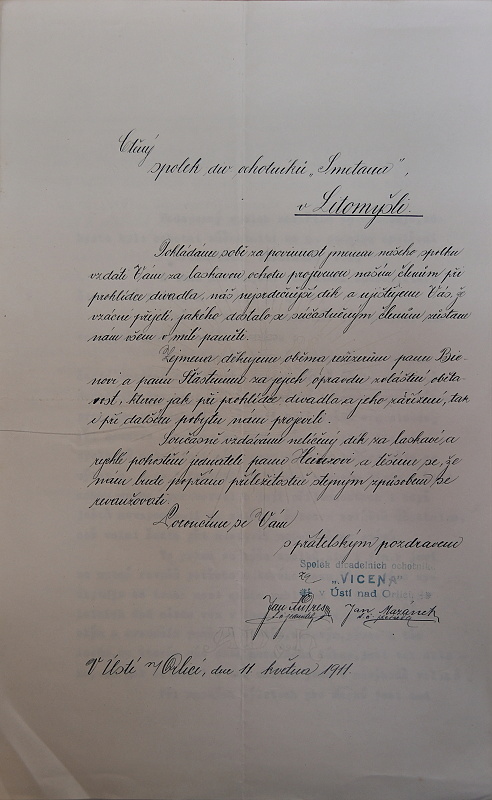 Ctěný
spolek div. ochotníků „Smetana",
v Litomyšli.
Pokládáme sobě za povinnost jmenem našeho spolku
vzdáti Vám za laskavou ochotu projevenou našim členům při
prohlídce divadla, náš nejsrdečnější dík a ujišťujeme Vás, že
vzácné přijetí, jakého dostalo se súčastněným členům zůstane
nám všem v milé paměti.
Zejmena děkujeme oběma režisérům panu
novi a panu Šťastnému za jejich opravdu zvláštní oběta-
vost, kterou jak při prohlídce divadla a jeho zařízení, tak
i při dalším pobytu nám projevili.
Současně vzdáváme neličený dík za laskavé a
rychlé pohostění jednateli panu a těšíme se, že
nám bude popřáno příležitosti stejným způsobem se
revanžovati.
Poroučíme se Vám
s přátelským pozdravem
Spolek divadelních ochotníků
za „VICENA"
v Ústí nad Orlicí
Jan Jan Mazánek
t. č. jednatel t. č. předseda
V Ústí n/Orlicí, dne 11 května 1911.